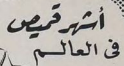 أشهر قميص
فى العالم